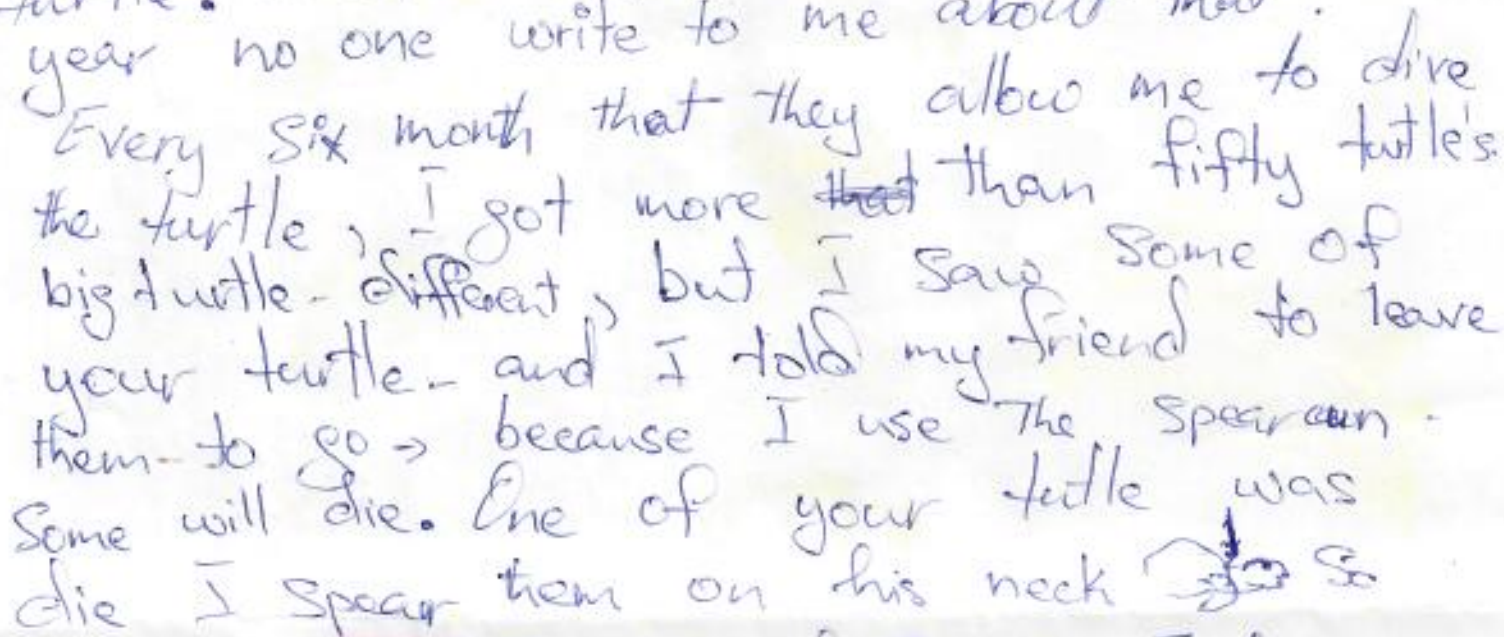 turtle.
year no one write to me about that.
Every six month that they allow me to dive
the turtle, I got more that than fifty turtle's.
big turtle - different, but I saw some of
your turtle - and I told my friend to leave
them - to go → because I use The spear gun.
Some will die. One of your tutle was
die I spear them on his neck So